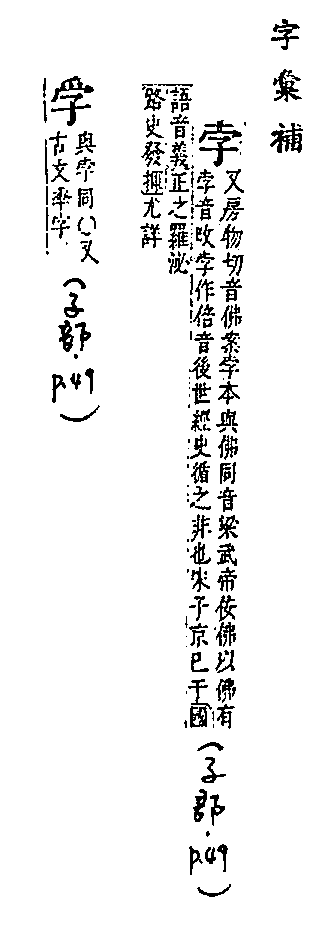 字彙補
孛
又房物切音佛案孛本與佛同音梁武帝佞佛以佛有
孛音改孛作倍音後世經史循之非也宋子京已于國
語音義正之羅泌
路史發揮尤詳
(子部.p.49)
𡥉
與孛同○又
古文孚字
(子部.p.49)